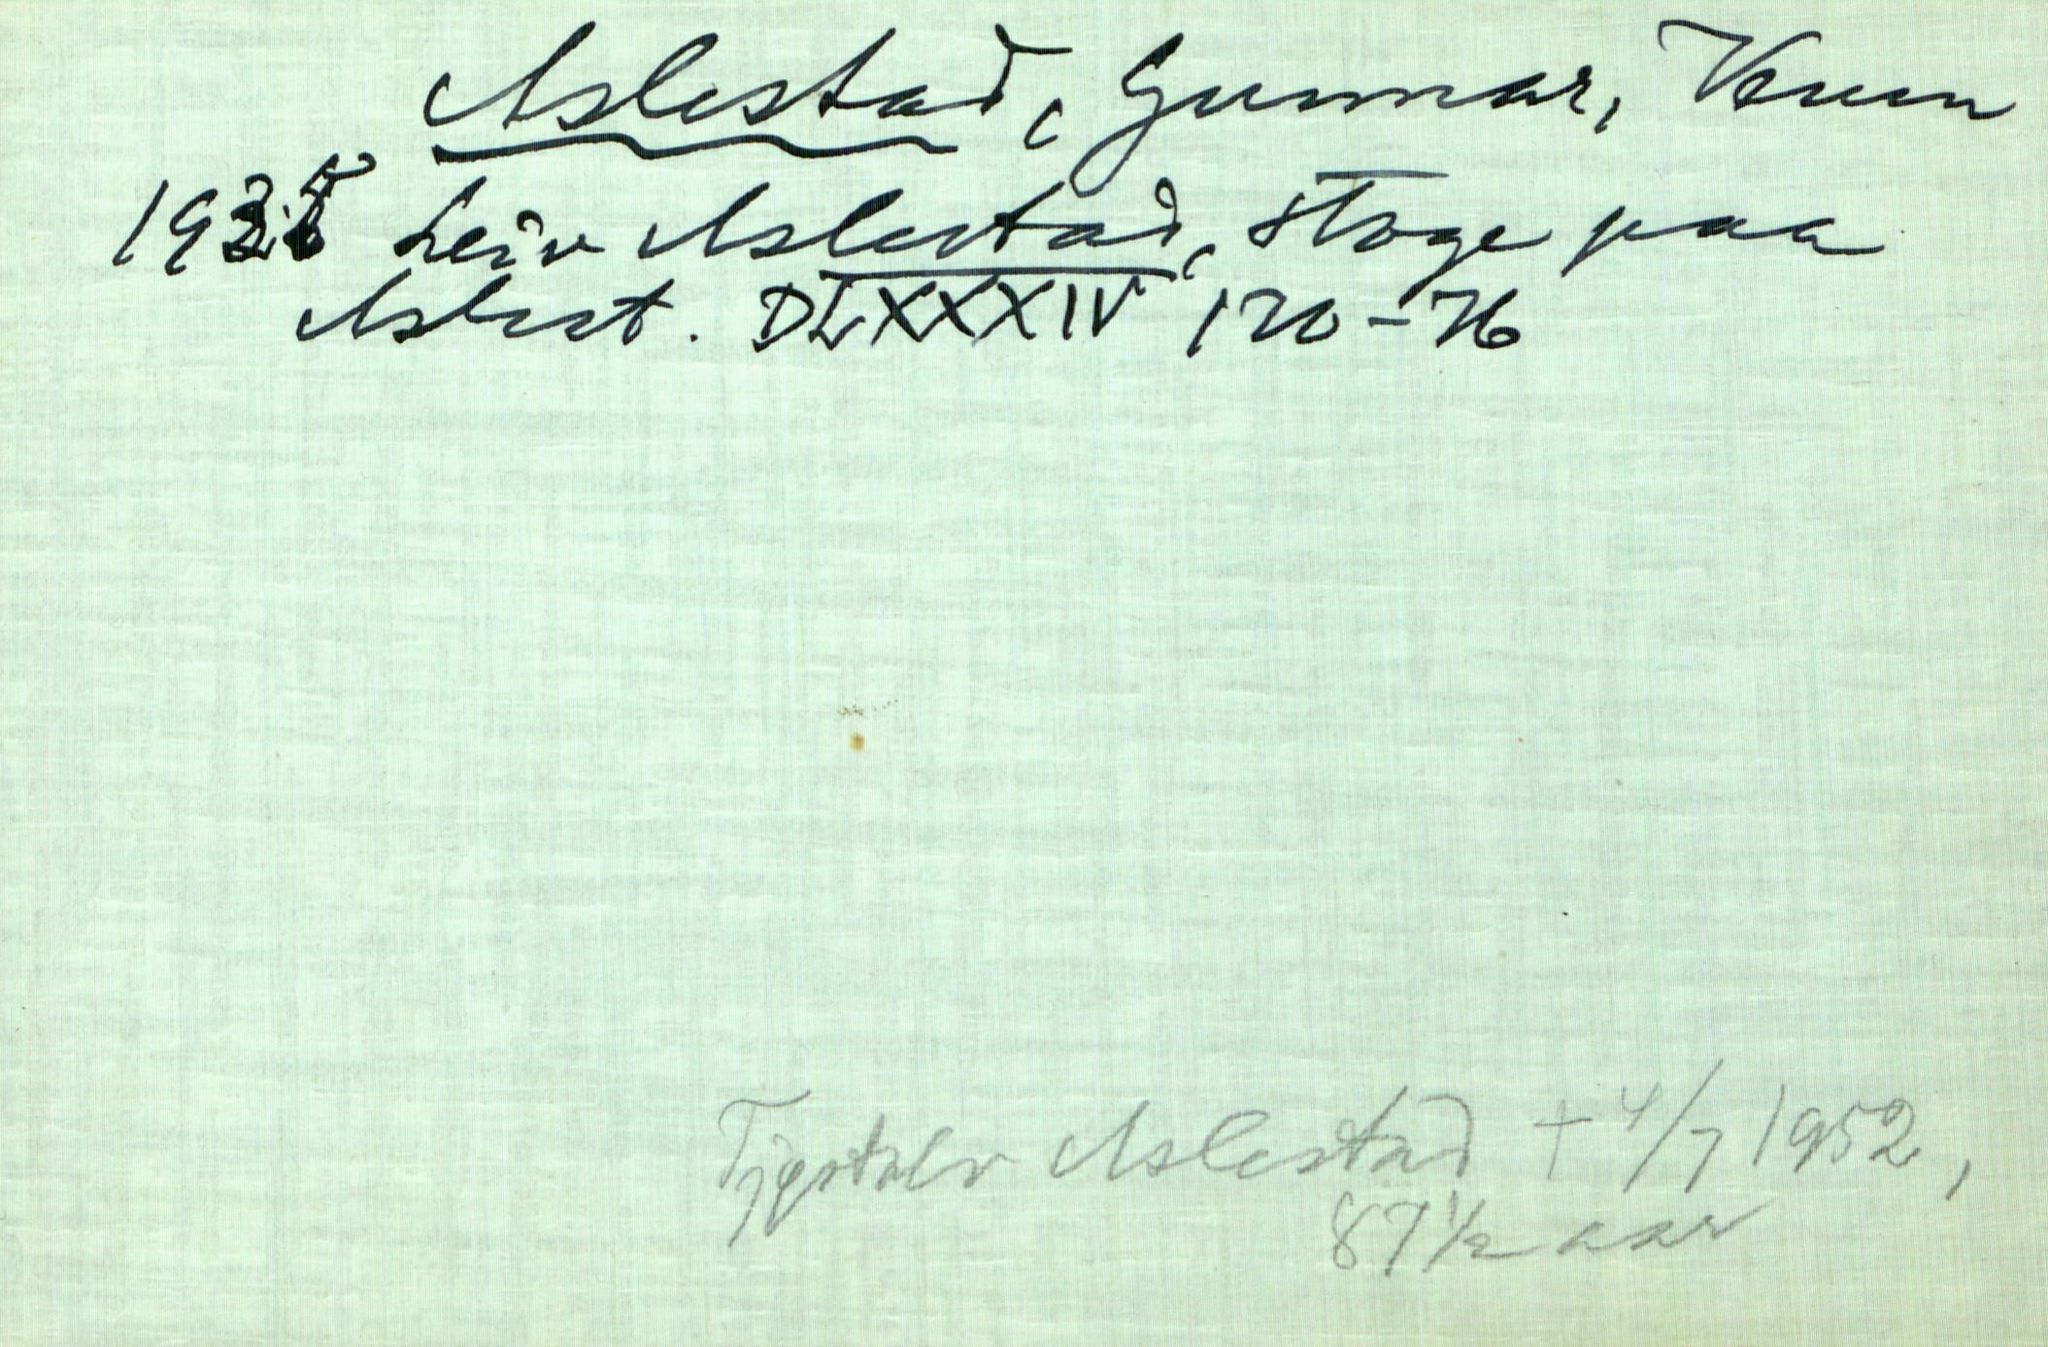 Aslestad, Gunnar, Veum
Leiv Aslestad, Stoge paa
Aslest. DLXXXIV 170-76
Tjøstolv Aslestad + 4/7 1952,
87 1/2 aar